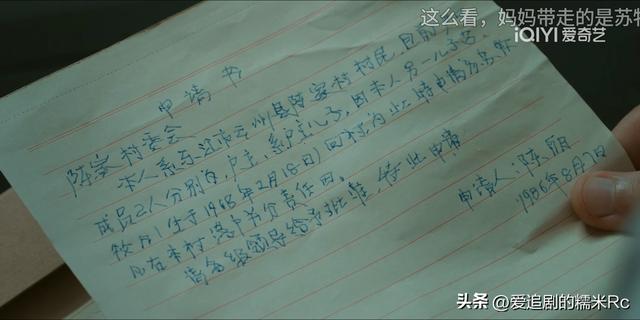 这么看，妈妈带走的是苏牧
iQIYI 爱奇艺
申请书
陈家村委会
本人系东江市云州县陈家村村民，目前户
成员2人分别为，户主，系户主儿子，因本人另一儿子苏
牧（生于1968年2月18日）
凡在本村落户并分责任田。
请各级领导给予批准，特此申请
申请人：陈
1986年8月7日
头条 @爱追剧的糯米Rc